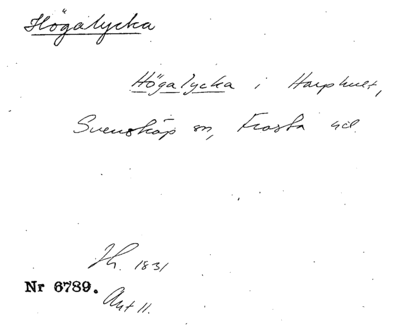 Högalycka
Högalycka i Harphult,
Svensköp sn, Frosta hd.
Jh. 1831
Nr 6789.
Akt 11.